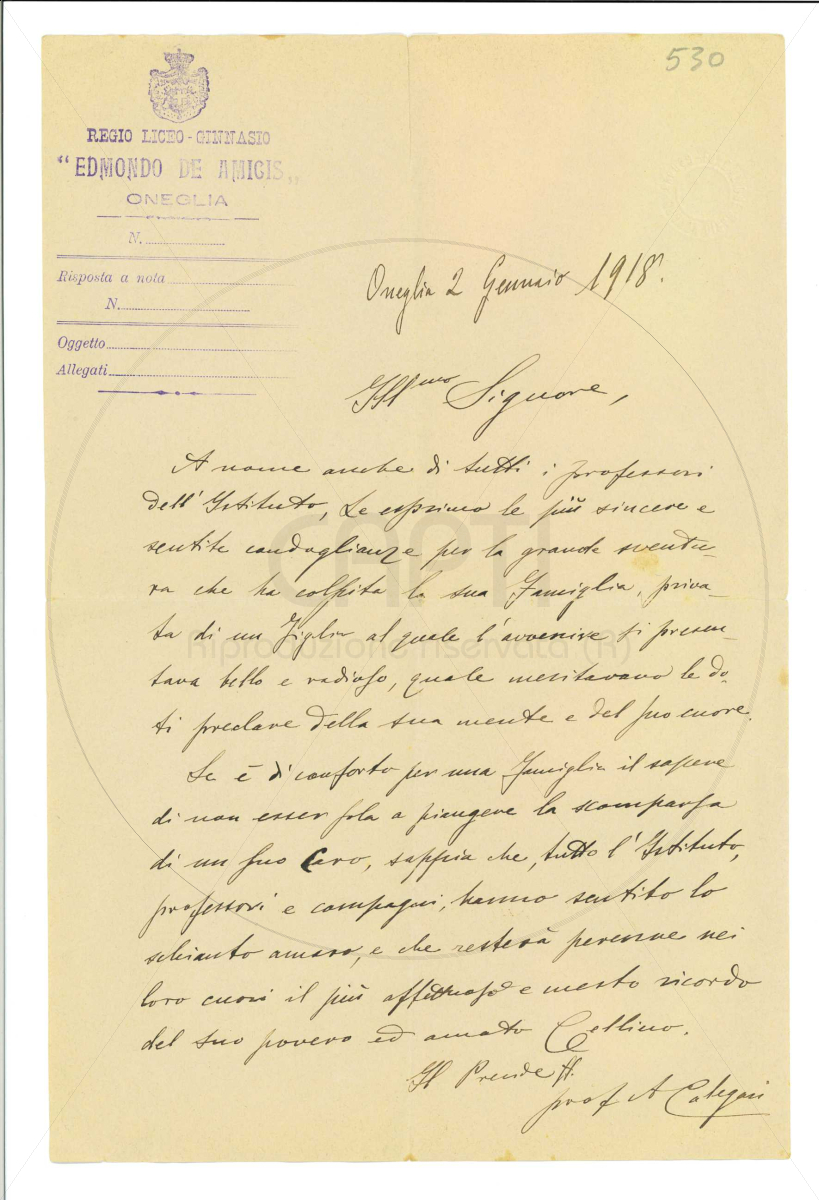 530
REGIO LICEO-GINNASIO
"EDMONDO DE AMICIS„
ONEGLIA
N.
Risposta a nota
N.
Oggetto
Allegati
Oneglia 2 Gennaio 1918.
Ill^mo Signore,
A nome anche di tutti i professori
dell'Istituto, Le esprimo le più sincere e
sentite condoglianze per la grande sventu-
ra che ha colpita la sua Famiglia, priva-
ta di un Figlio al quale l'avvenire si presen-
tava bello e radioso, quale meritavano le do-
ti preclare della sua mente e del suo cuore.
Se è di conforto per una Famiglia il sapere
di non esser sola a piangere la scomparsa
di un suo Caro, sappia che, tutto l'Istituto,
professori e compagni, hanno sentito lo
schianto amaro, e che resterà perenne nei
loro cuori il più affettuoso e mesto ricordo
del suo povero ed amato Cellino.
Il Preside ff.
prof A Calegari
CAPTI
Riproduzione riservata (R)